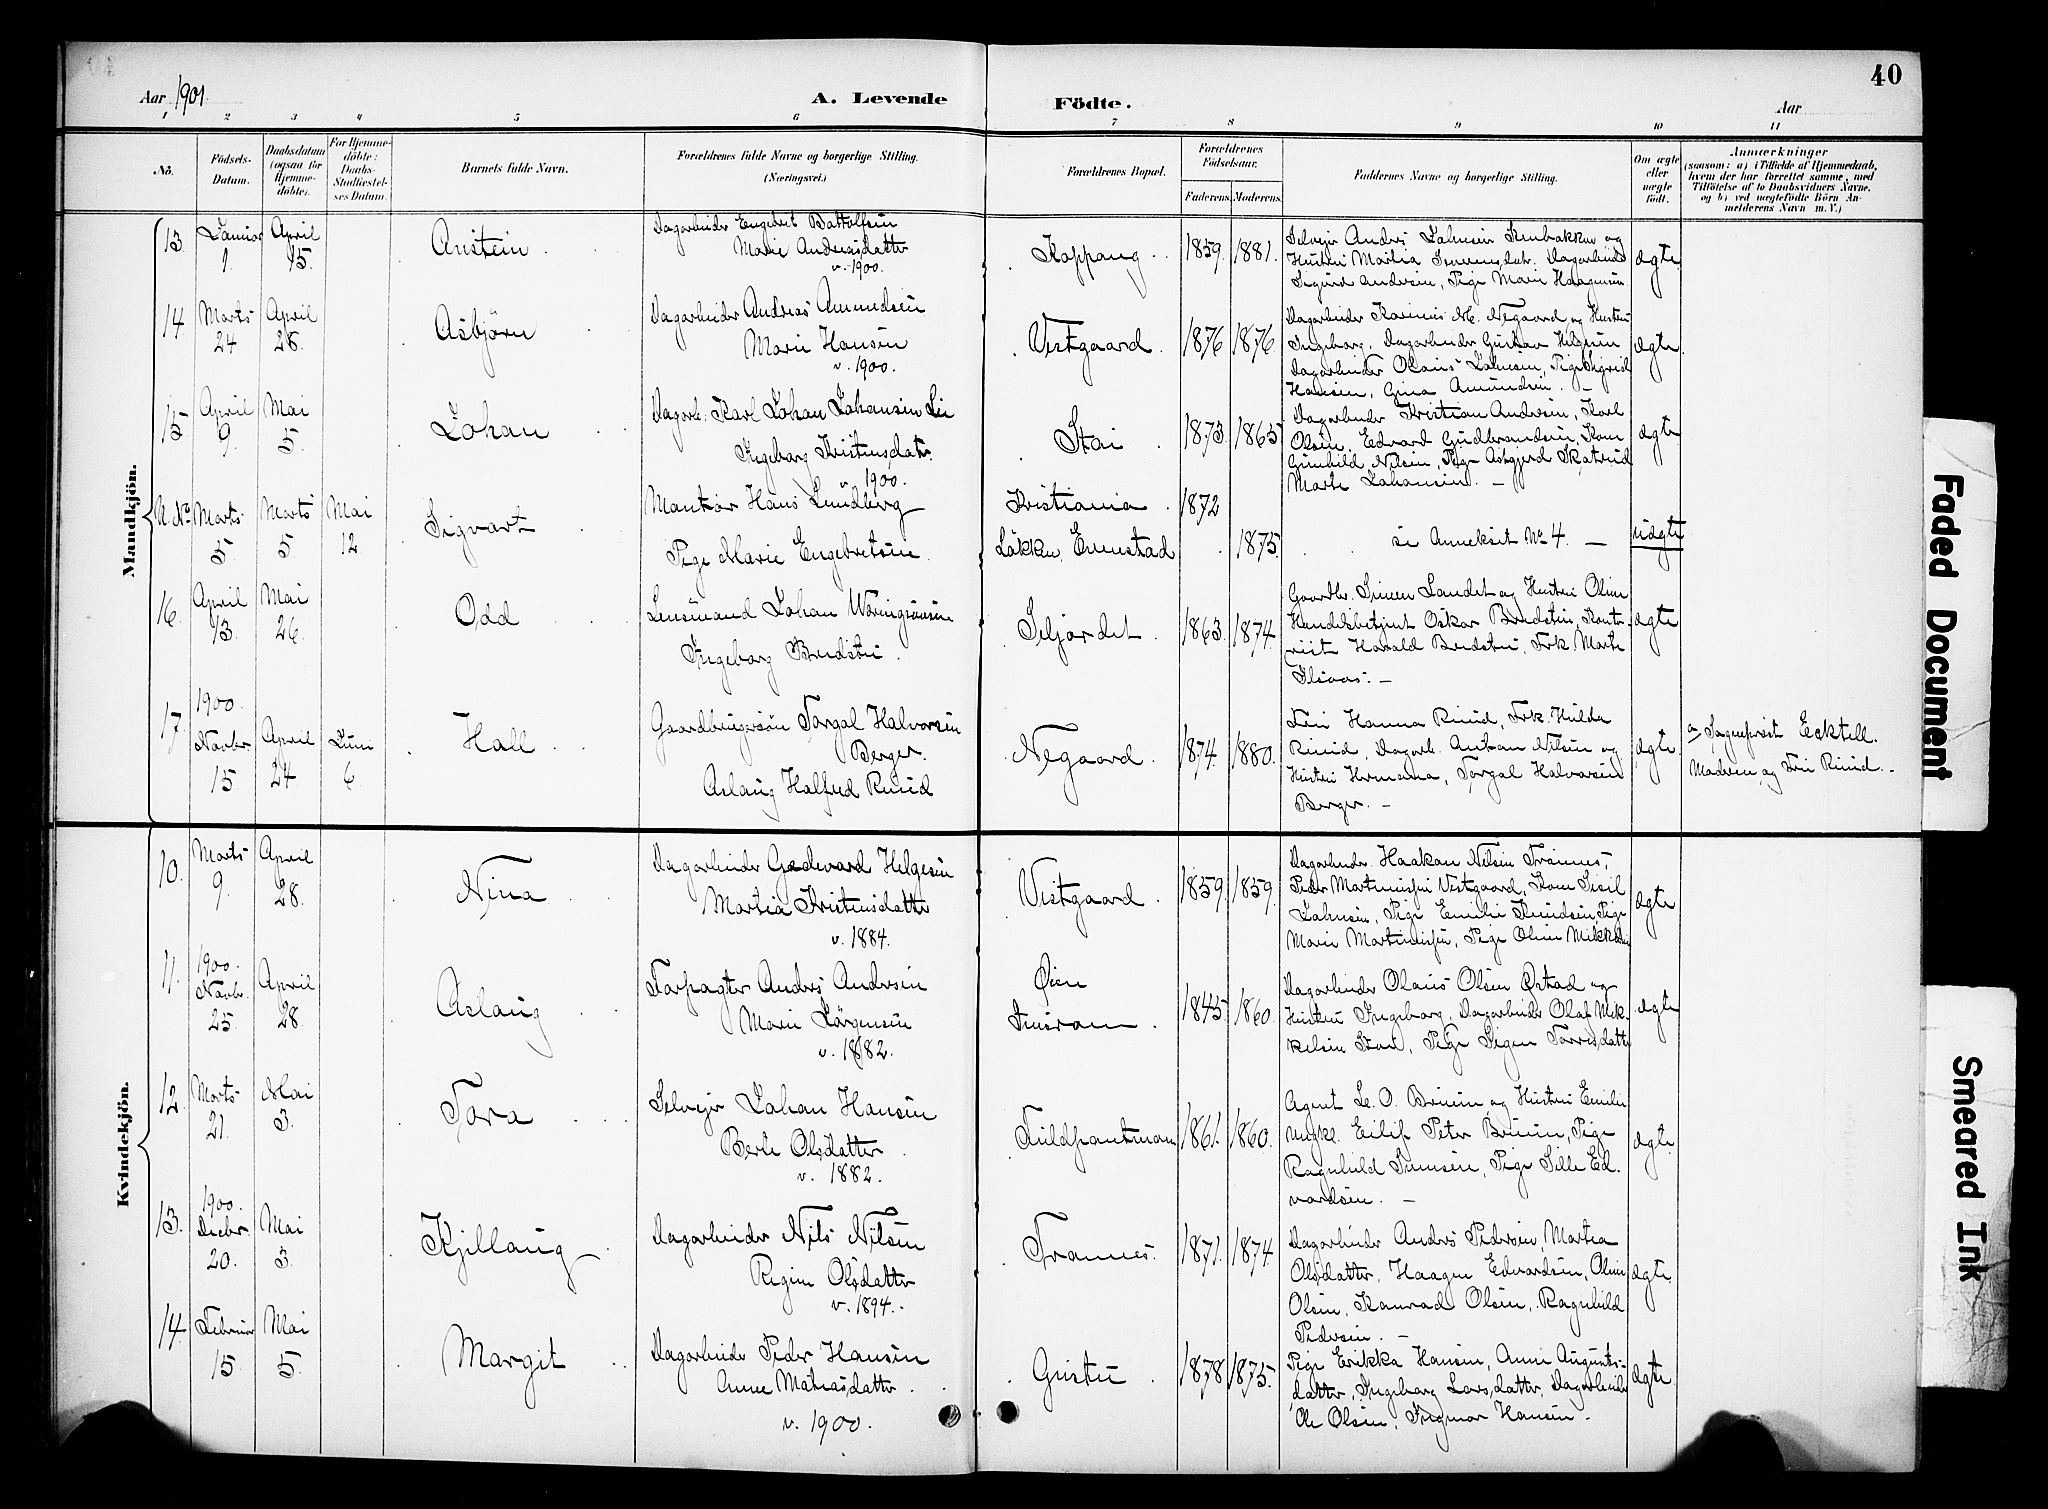 40
Aar 1901.
A. Levende Födte.
Aar
1 2 3 4 5 6 7 8 9 10 11
No. Födsels-Datum. Daabsdatum (ogsaa for Hjemme-döbte). For Hjemme-döbte: Daabs-Stadfæstel-ses Datum. Barnets fulde Navn. Forældrenes fulde Navne og borgerlige Stilling. (Næringsvei.) Forældrenes Bopæl. Forældrenes Födselsaar. Faderens Moderens Faddernes Navne og borgerlige Stilling. Om ægte eller uægte födt. Anmærkninger
(saasom: a) i Tilfælde af Hjemmedaab, hvem der har forrettet samme, med Tilföielse af to Daabsvidners Navne, og b) ved uægtefödte Börn Anmelderens Navn m. V.)
Mandkjön.
13. Januar 1. April 15. Austein
Dagarbeider Engebret Battolfsen
Marie Andreasdatter
v. 1900.
Koppang. 1859. 1881.
Selveier Andreas Johnsen og
Hustru Martia Dagarbeider
Sigurd Andersen, Pige Marie Haagensen
ægte
14 Marts 24 April 28. Asbjörn
Dagarbeider Andreas Amundsen
Marie Hansen
v. 1900.
Vestgaard. 1876 1876
Dagarbeider Karinius M. Negaard og Hustru
Ingeborg, Dagarbeider Gustav Helgesen
Dagarbeider Olaus Johnsen, Pige Sigrid
Hansen, Gina Amundsen. —
ægte
15 April 9. Mai 5. Johan
Dagarb. Karl Johan Johansen Lie
Ingeborg Kristensdatr.
v. 1900.
Stai 1873. 1865
Dagarbeider Kristian Andersen, Karl
Olsen, Edvard Gudbrandsen, Kone
Gunhild Nilsen, Pige Asbjørd Skatrud
Marte Johansen. —
ægte
U. No. Marts 5 Marts 5. Mai 12. Sigvart
Murikør Hans Lundberg
Pige Marie Engebretsen
Kristiania. 1872
Løkken, Evenstad 1875.
se Annekset No 4. —
uægte
16. April 13. Mai 26. Odd
Lensmand Johan
Ingeborg Bredsten.
Seljordet. 1863. 1874.
Gaardbr. Simen Landet og Hustru Oline
Handelsbetjent Oskar Bredsten, Kont-
rist Harald Bredsten, Frk. Marte
ægte
17. 1900. Novbr. 15. April 24 Juni 6. Hall
Gaardbrugersøn Torgal Halvorsen
Berger.
Aslaug Halfred Ruud
Negaard. 1874. 1880.
Fru Hanna Ruud, Frk. Hulda
Ruud, Dagarb. Anton Nilsen og
Hustru Hermana, Torgal Halvorsen
Berger. —
ægte
a) Sogneprest Ecktell.
Moderen og Fru Ruud. —
Kvindekjön.
10. Marts 9. April 28. Nina
Dagarbeider Gedevard Helgesen
Martia Kristensdatter
v. 1884.
Vestgaard 1859. 1859.
Dagarbeider Haakon Nilsen Trønnes,
Peder Martinussen Vestgaard, Kone Sisil
Johnsen, Pige Emilie Knudsen, Pige
Marie Martinussen, Pige Oline
ægte
11. 1900. Novbr. 25. April 28 Aslaug
Forpagter Anders Andersen
Marie Jørgensen
v. 1882.
Øien
Imsroen 1845. 1860.
Dagarbeider Olaus Olsen Østad og
Hustru Ingeborg, Dagarbeider Olaf Mik-
kelsen Stai, Pige Sigen Torresdatter
ægte
12. Marts 21. Mai 3. Tora
Selveier Johan Hansen
Berte Olsdatter
v. 1882.
1861. 1860.
Agent L. O. Bruun og Hustru Emilie
Ungkl. Eilif Peter Bruun, Pige
Ragnhild Simensen, Pige Sille Ed-
vardsen. —
ægte.
13. 1900. Decbr. 20. Mai 3. Kjellaug
Dagarbeider Nils Nilsen
Regine Olsdatter
v. 1894.
Trønnes. 1871. 1874.
Dagarbeider Anders Pedersen, Martia
Olsdatter, Haagen Edvardsen, Oline
Olsen, Konrad Olsen, Ragnhild
Pedersen. —
ægte.
14. Februar 15. Mai 5. Margit
Dagarbeider Peder Hansen
Anne Matiasdatter.
v. 1900.
Gustu 1878 1875.
Pige Erikka Hansen, Anne Augusts-
datter, Ingeborg Larsdatter, Dagarbeider
Ole Olsen, Ingmar Hansen.
ægte.
Faded Document
Smeared Ink